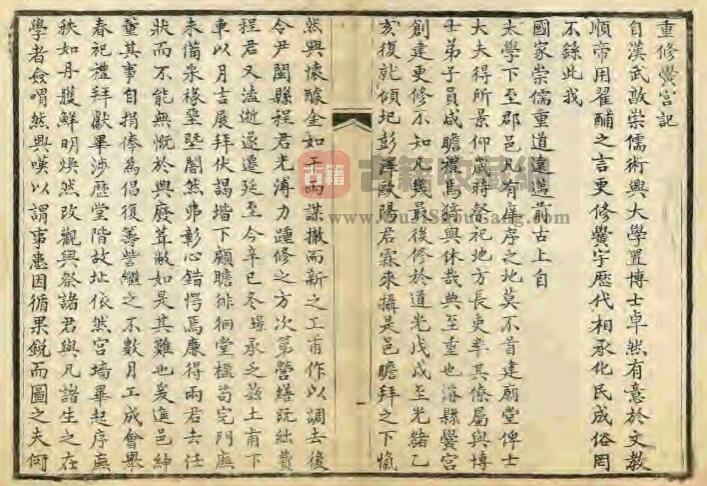 重修黌宮記
自漢武敦崇儒術興大學置博士卓然有意於文教
順帝用翟酺之言更修黌宇歷代相承化民成俗罔
不繇此我
國家崇儒重道遠邁前古上自
太學下至郡邑凡有庠序之地莫不首建廟堂俾士
大夫得所景仰歲時祭祀地方長吏率其僚屬與博
士弟子員咸瞻禮焉猗與休哉典至重也濬縣黌宮
創建更修不知凡幾最後修於道光戊戌至光緒乙
亥復就傾圯彭澤歐陽君霖來攝是邑瞻拜之下愾
然興懷醵金如干兩謀撤而新之工甫作以調去後
令尹閩縣程君光溥力踵修之方次第營繕阮絀費
程君又溘逝遂遷延至今辛巳冬 承乏茲土甫下
車以月吉展拜伏謁堦下顧瞻徘徊堂楹苟完門廡
未備采椽堊墍闇然弗彰心錯愕焉廉得兩君去任
狀而不能無慨於興廢葺敝如是其難也爰進邑紳
董其事自捐俸為倡復籌訾繼之不數月工成會舉
春祀禮拜獻畢涉歷堂階故址依然宮墻畢起序廡
秩如丹雘鮮明煥然改觀與祭諸君與凡諸生之在
學者僉喟然興嘆以謂事患因循果銳而圖之夫何
古籍
古籍收藏网
www.GuJiShouCang.com